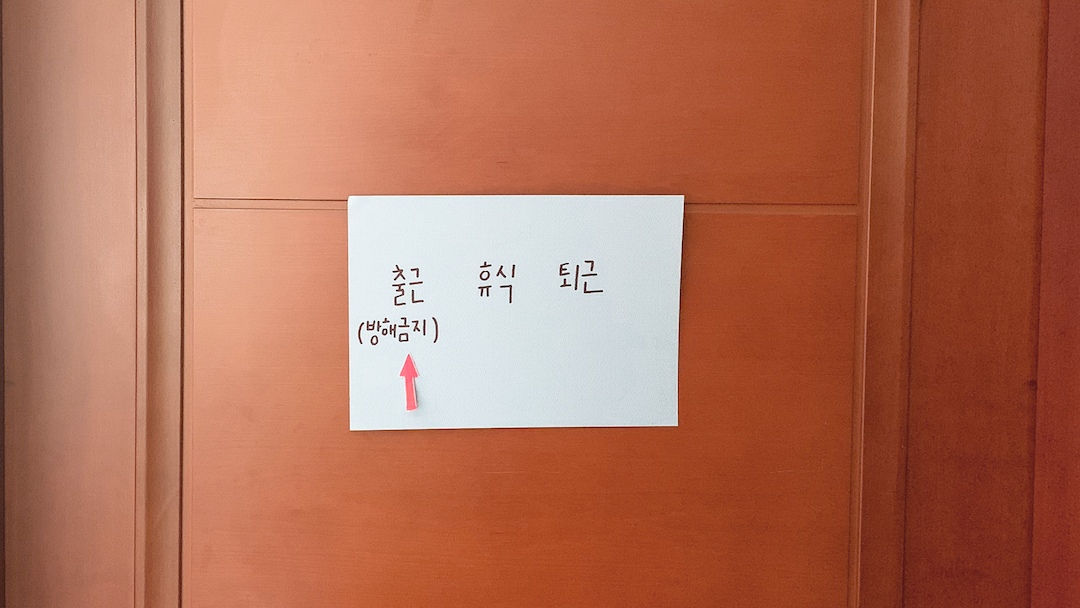 출근 휴식 퇴근
(방해금지)